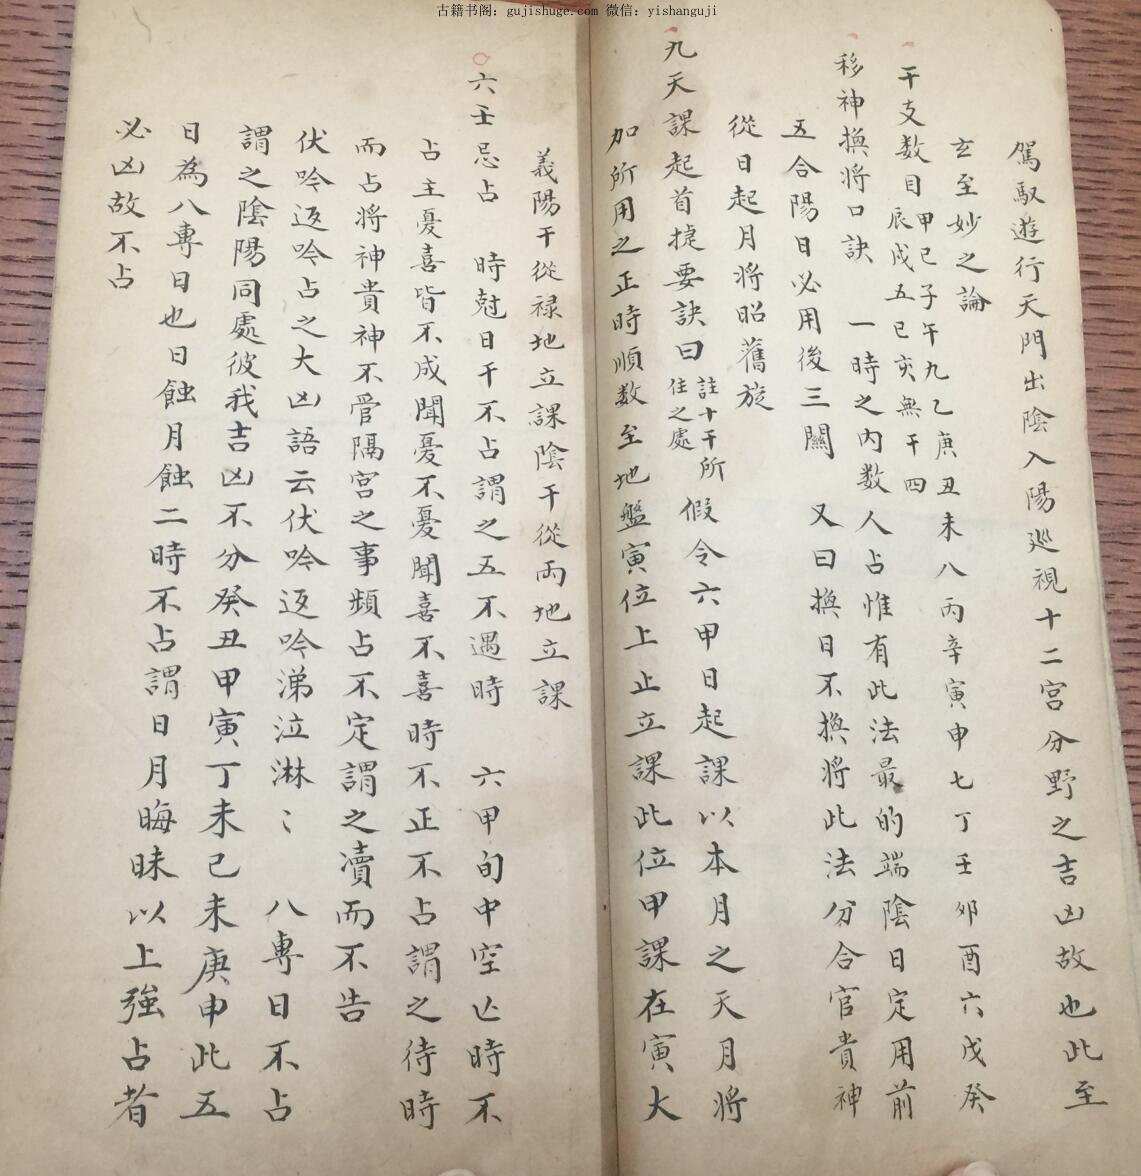 古籍书阁：gujishuge.com 微信：yishanguji
駕馭遊行天門出陰入陽巡視十二宮分野之吉凶故也此至
玄至妙之論
干支数目甲己子午九乙庚丑未八丙辛寅申七丁壬卯酉六戊癸
辰戌五巳亥無干四
移神換將口訣 一時之内数人占惟有此法最的端陰日定用前
五合陽日必用後三關 又曰換日不換將此法分合官貴神
從日起月將昭舊旋
九天課起首捷要訣曰註十干所住之處 假令六甲日起課以本月之天月將
加所用之正時順数至地盤寅位上止立課此位甲課在寅大
義陽干從祿地立課陰干從両地立課
六壬忌占 時尅日干不占謂之五不遇時 六甲旬中空亡時不
占主憂喜皆不成聞憂不憂聞喜不喜時不正不占謂之待時
而占將神貴神不管隔宮之事頻占不定謂之凟而不告
伏吟返吟占之大凶語云伏吟返吟涕泣淋〻 八專日不占
謂之陰陽同處彼我吉凶不分癸丑甲寅丁未己未庚申此五
日為八專日也日蝕月蝕二時不占謂日月晦昧以上強占者
必凶故不占